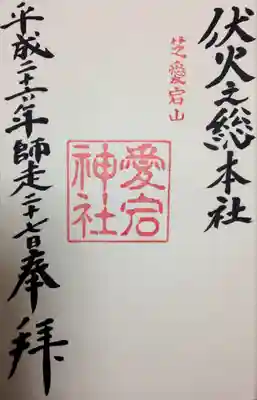 伏火之総本社
芝愛宕山
愛宕
神社
平成二十六年師走二十七日奉拝